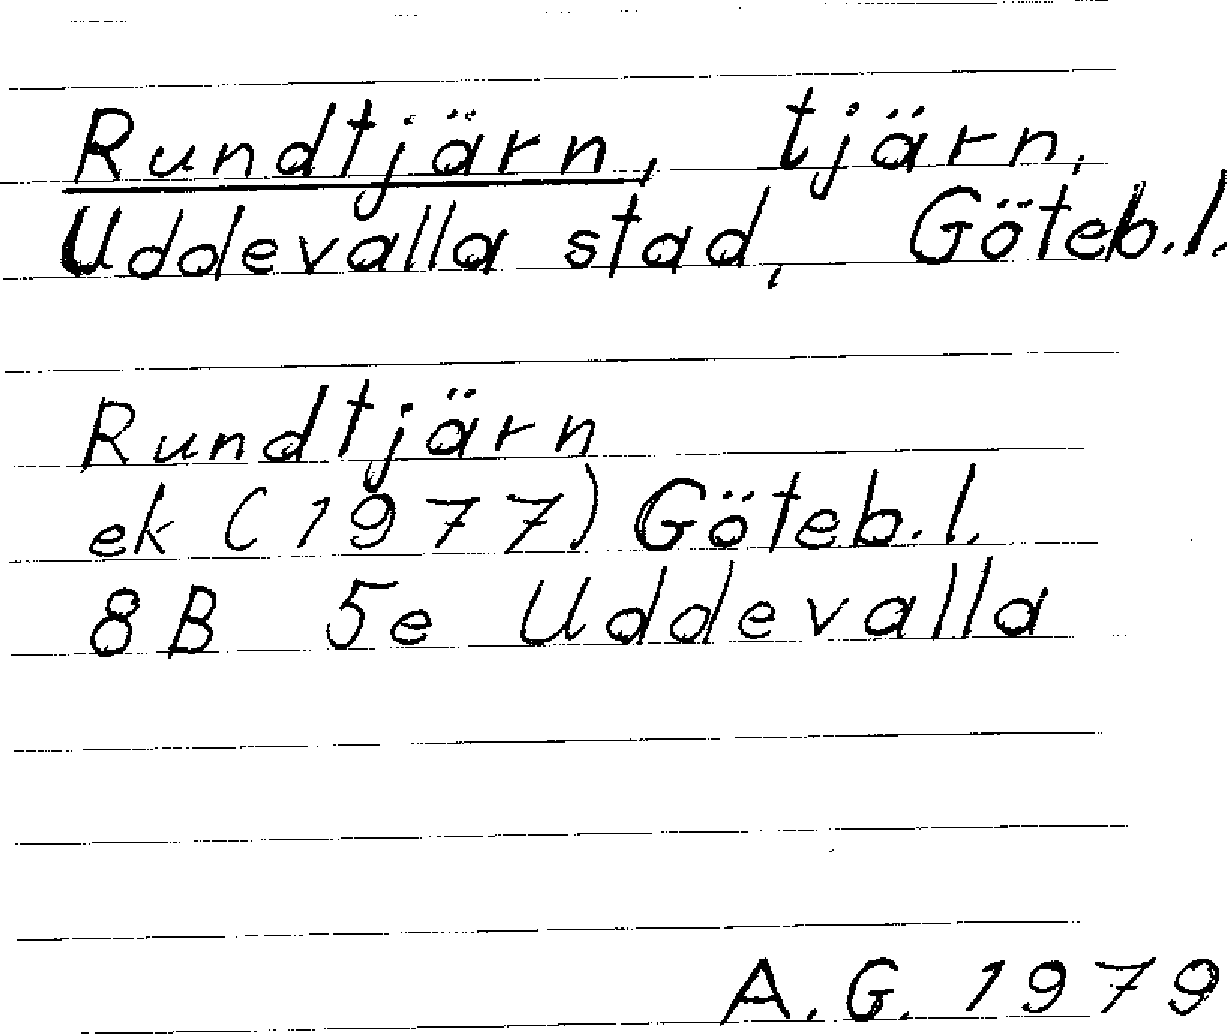 Rundtjärn, tjärn,
Uddevalla stad, Göteb.l.
Rundtjärn
ek (1977) Göteb.l.
8B 5e Uddevalla
A.G. 1979